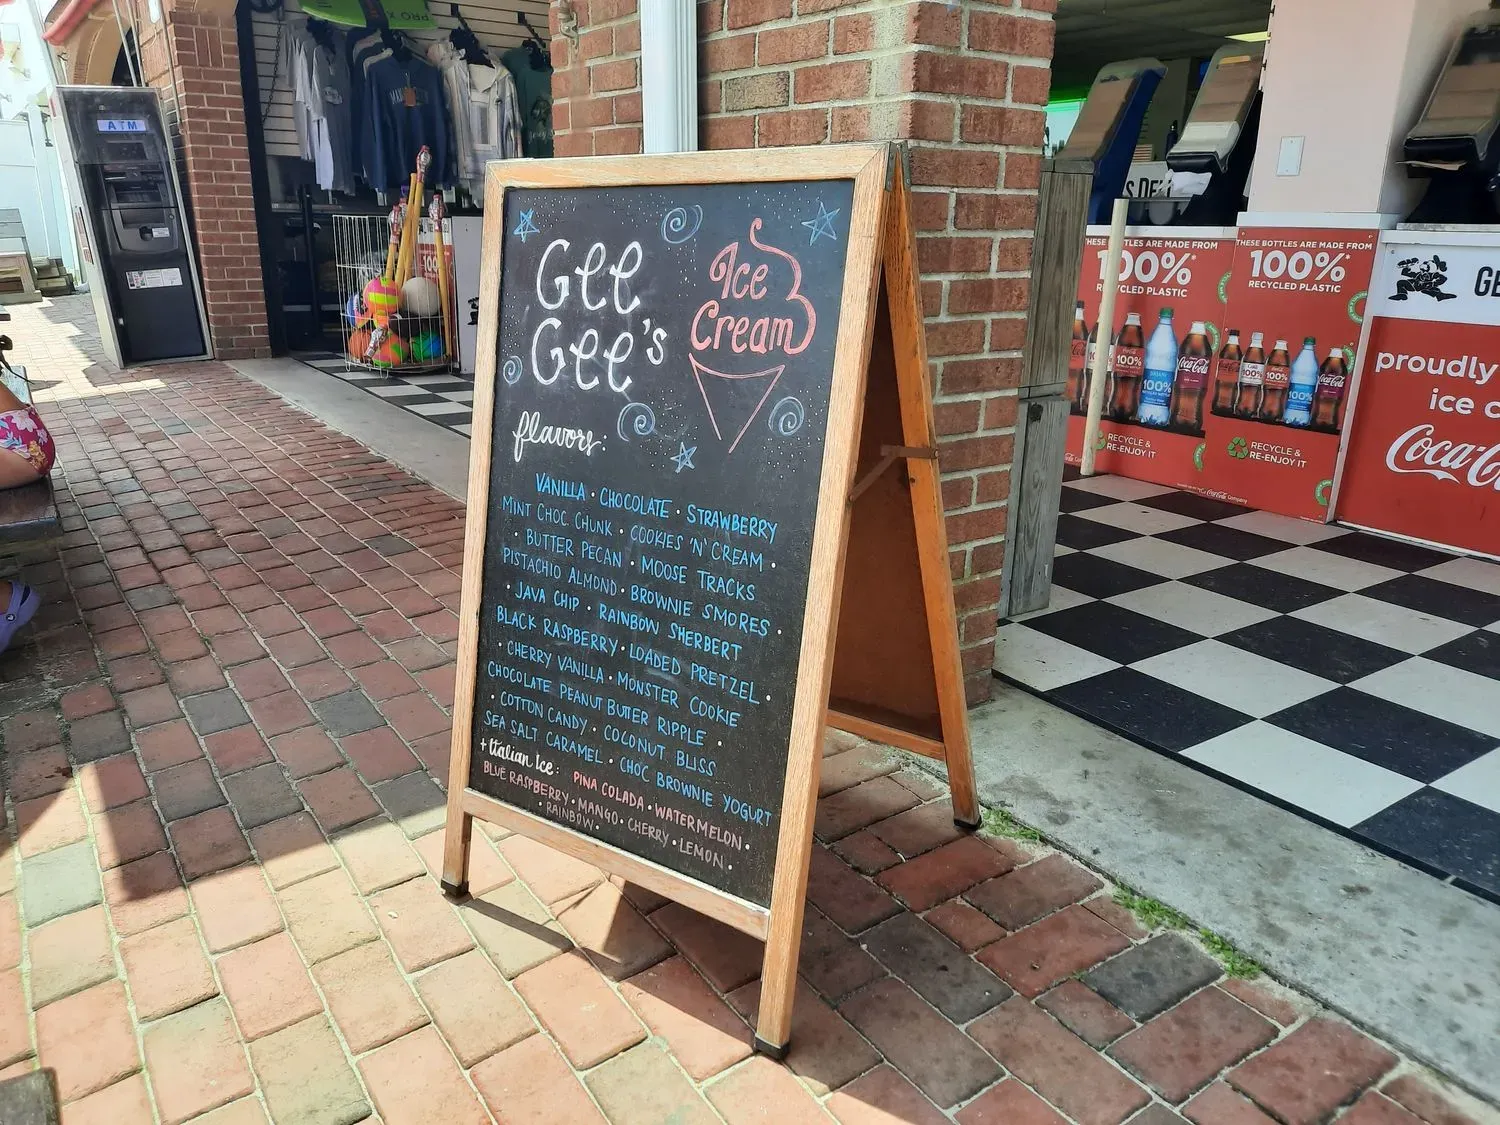 ATM
Gee
Gee's
Ice
Cream
flavors:
VANILLA • CHOCOLATE • STRAWBERRY
MINT CHOC CHUNK • COOKIES 'N' CREAM •
• BUTTER PECAN • MOOSE TRACKS
PISTACHIO ALMOND • BROWNIE SMORES •
• JAVA CHIP • RAINBOW SHERBERT
BLACK RASPBERRY • LOADED PRETZEL •
• CHERRY VANILLA • MONSTER COOKIE
CHOCOLATE PEANUT BUTTER RIPPLE •
• COTTON CANDY • COCONUT BLISS
SEA SALT CARAMEL • CHOC BROWNIE YOGURT
+ Italian Ice: PINA COLADA • WATERMELON •
BLUE RASPBERRY • MANGO • CHERRY • LEMON •
• RAINBOW •
THESE BOTTLES ARE MADE FROM
100%*
RECYCLED PLASTIC
RECYCLE &
RE-ENJOY IT
THESE BOTTLES ARE MADE FROM
100%*
RECYCLED PLASTIC
RECYCLE &
RE-ENJOY IT
GE
proudly
ice c
Coca-C